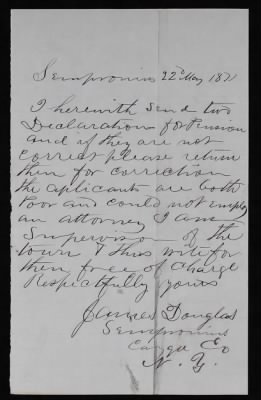 Sempronius 22d May 1871
I herewith send two
Declaration for Pension
and if they are not
correct please return
them for correction
the aplicants are both
Poor and could not employ
an attorney I am
Supervisor of the
town & thus write for
them free of charge
Respectfully yours
James Douglas
Sempronius
Cayga Co
N. Y.